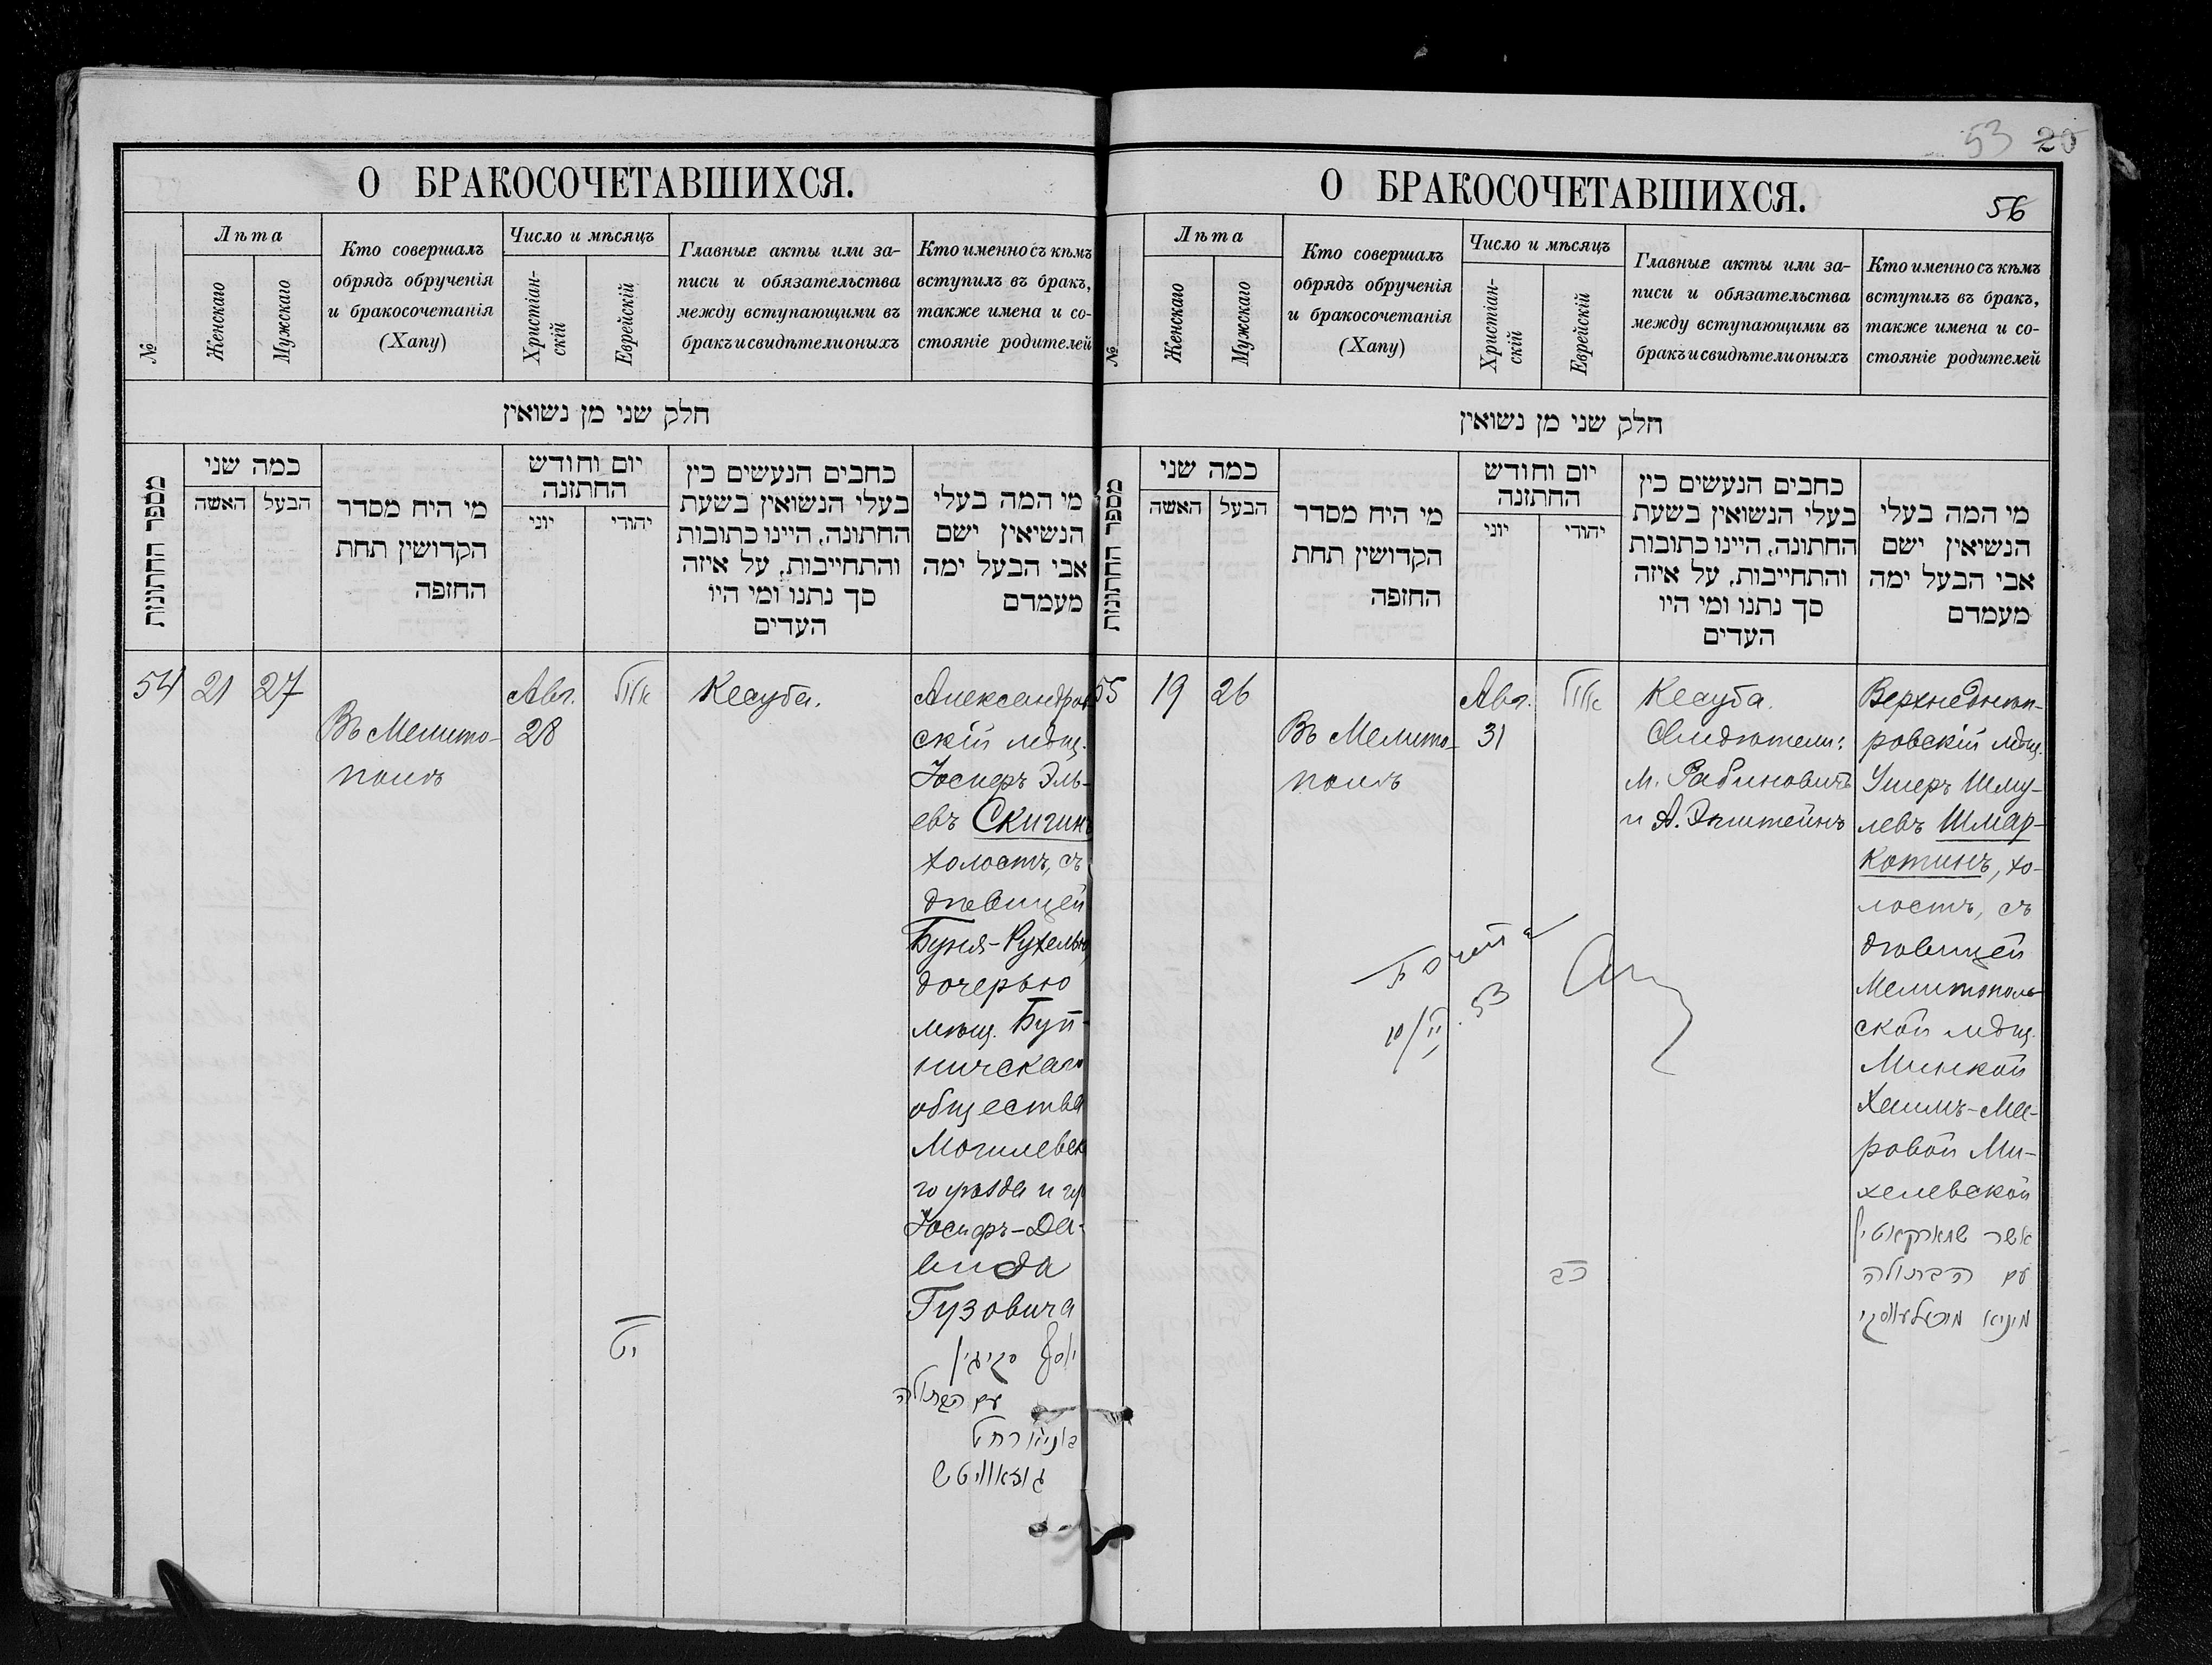 О БРАКОСОЧЕТАВШИХСЯ.
№
Лѣта
Женскаго
Мужскаго
Кто совершалъ
обрядъ обрученія
и бракосочетанія
(Хапу)
Число и мѣсяцъ
Христіан-
скій
Еврейскій
Главные акты или за-
писи и обязательства
между вступающими въ
бракъ и свидѣтели оныхъ
Кто именно съ кѣмъ
вступилъ въ бракъ,
также имена и со-
стояніе родителей
חלק שני מן נשואין
מספר החתונות
כמה שני
האשה
הבעל
מי היח מסדר
הקדושין תחת
החזפה
יום וחודש
החתזנה
יוני
יהודי
כחבים הנעשים כין
בעלי הנשואין בשעת
החתונה, היינו כתובות
והתחייבות, על איזה
סך נתנו ומי היו
העדים
מי המה בעלי
הנשיאין ישם
אבי הבעל ימה
מעמדם
54
21
27
Въ Мелито-
полѣ
Авг.
28
אלול
יט
Кесуба.
Александров
скій мѣщ.
Іосифъ Эль-
евъ Скигинъ
холостъ, съ
дѣвицей
Буня-Рухелью,
дочерью
мѣщ.
ничскаго
общества
Могилевск
го уѣзда и гу
Іосифъ-Да-
вида
Гузовича
יוסף סקיגין
עם הבתולה
בוניא רחל
גוזאוויטש
53 20
О БРАКОСОЧЕТАВШИХСЯ.
56
№
Лѣта
Женскаго
Мужскаго
Кто совершалъ
обрядъ обрученія
и бракосочетанія
(Хапу)
Число и мѣсяцъ
Христіан-
скій
Еврейскій
Главные акты или за-
писи и обязательства
между вступающими въ
бракъ и свидѣтели оныхъ
Кто именно съ кѣмъ
вступилъ въ бракъ,
также имена и со-
стояніе родителей
חלק שני מן נשואין
מספר החתונות
כמה שני
האשה
הבעל
מי היח מסדר
הקדושין תחת
החזפה
יום וחודש
החתזנה
יוני
יהודי
כחבים הנעשים כין
בעלי הנשואין בשעת
החתונה, היינו כתובות
והתחייבות, על איזה
סך נתנו ומי היו
העדים
מי המה בעלי
הנשיאין ישם
אבי הבעל ימה
מעמדם
55
19
26
Въ Мелито-
полѣ
Авг.
31
אלול
כב
Кесуба.
Свидѣтели:
М. Рабиновичъ
и А. Эпштейнъ
10/II. 53
Верхнеднѣп-
ровскій мѣщ.
Ушеръ Шму-
левъ Шмар-
котинъ, хо-
лостъ, съ
дѣвицей
Мелитополь-
ской мѣщ.
Минкой
Хаимъ-Ме-
ровой Ми-
хелевской
אשר שמארקאטין
עם הבתולה
מיניא מיכעלעווסקי